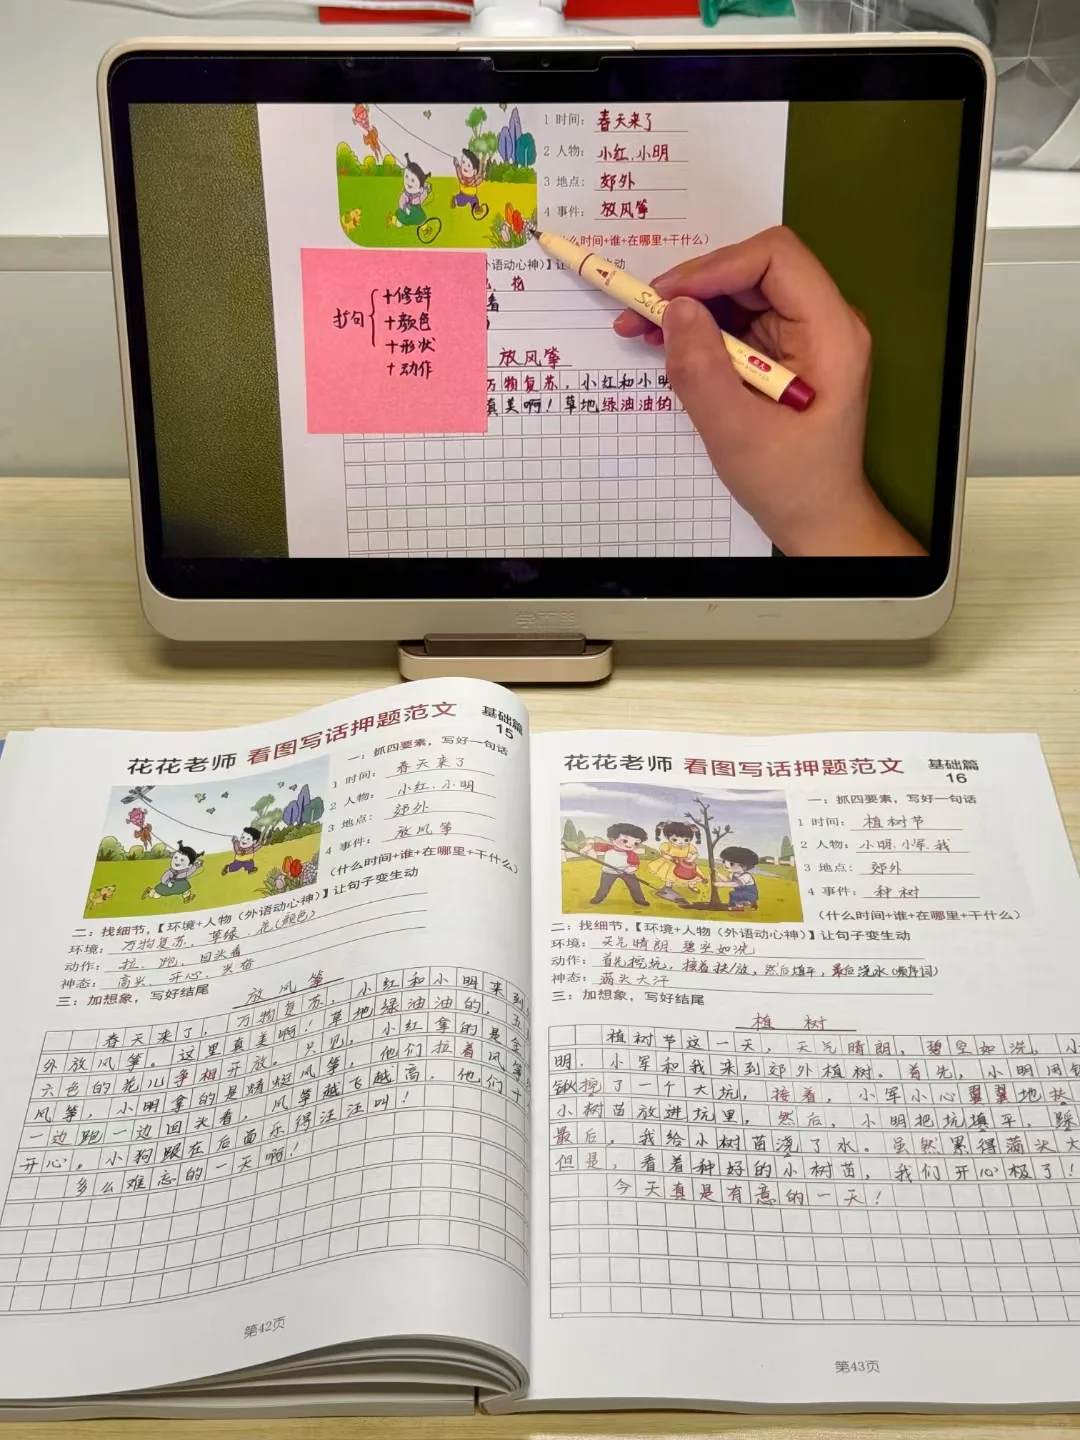 1 时间: 春天来了
2 人物: 小红、小明
3 地点: 郊外
4 事件: 放风筝
么时间+谁+在哪里+干什么)
外语动心神)】让
动
花
看
扩句
+修辞
+颜色
+形状
+动作
放风筝
万物复苏，小红和小明
真美啊！草地绿油油的
学而思
花花老师 看图写话押题范文 基础篇
15
一：抓四要素，写好一句话
1 时间: 春天来了
2 人物: 小红、小明
3 地点: 郊外
4 事件: 放风筝
(什么时间+谁+在哪里+干什么)
二：找细节，【环境+人物（外语动心神）】让句子变生动
环境: 万物复苏、草绿、花(颜色)
动作: 拉、跑、回头看
神态: 高兴、开心、兴奋
三：加想象，写好结尾
放风筝
春天来了，万物复苏，小红和小明来到
外放风筝。这里真美啊！草地绿油油的，五
六色的花儿争相开放。只见，小红拿的是金
风筝，小明拿的是蜻蜓风筝，他们拉着风筝
一边跑一边回头看，风筝越飞越高，他们十
开心。小狗跟在后面乐得汪汪叫！
多么难忘的一天啊！
第42页
花花老师 看图写话押题范文 基础篇
16
一：抓四要素，写好一句话
1 时间: 植树节
2 人物: 小明、小军、我
3 地点: 郊外
4 事件: 种树
(什么时间+谁+在哪里+干什么)
二：找细节，【环境+人物（外语动心神）】让句子变生动
环境: 天气晴朗、碧空如洗
动作: 首先挖坑，接着扶/放，然后填平，最后浇水(顺序词)
神态: 满头大汗
三：加想象，写好结尾
植树
植树节这一天，天气晴朗，碧空如洗，小
明、小军和我来到郊外植树。首先，小明用铁
锹挖了一个大坑，接着，小军小心翼翼地扶
小树苗放进坑里，然后，小明把坑填平，踩
最后，我给小树苗浇了水。虽然累得满头大
但是，看着种好的小树苗，我们开心极了！
今天真是有意的一天！
第43页